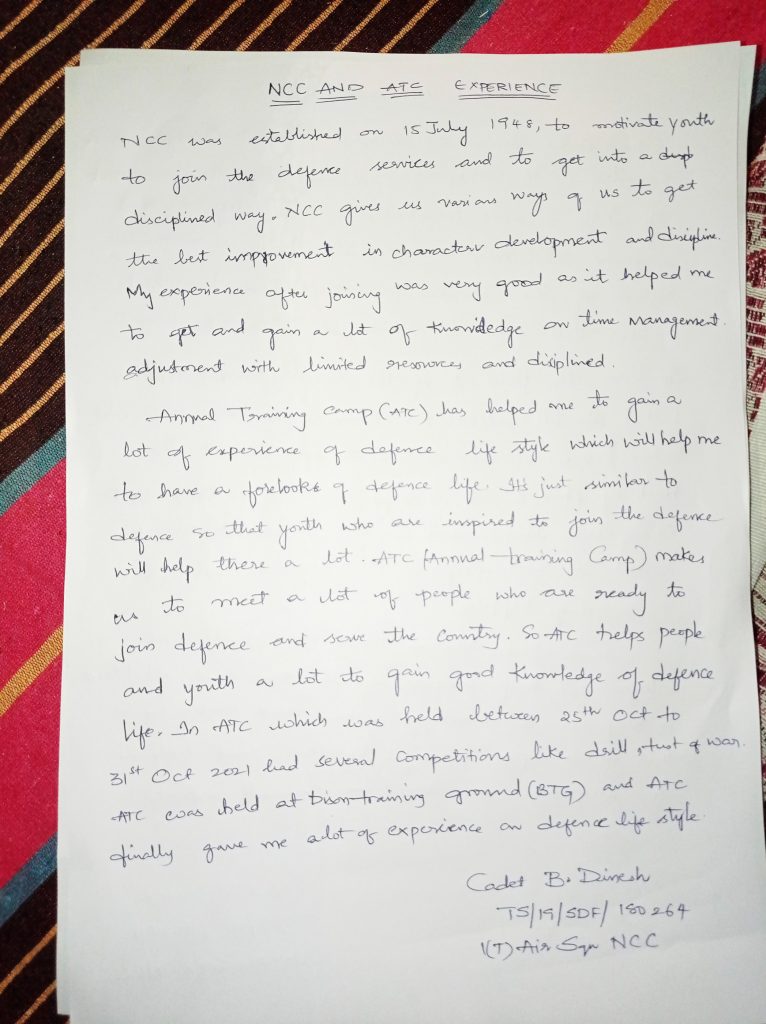 NCC AND ATC EXPERIENCE
NCC was established on 15 July 1948, to motivate youth
to join the defence services and to get into a
disciplined way. NCC gives us various ways of us to get
the best improvement in character development and disipline.
My experience after joining was very good as it helped me
to get and gain a lot of knowledge on time management.
adjustment with limited resources and disiplined.
Annual Training Camp (ATC) has helped me to gain a
lot of experience of defence life style which will help me
to have a forelooks of defence life. It's just similar to
defence so that youth who are inspired to join the defence
will help there a lot. ATC (Annual training Camp) makes
us to meet a lot of people who are ready to
join defence and serve the country. So ATC helps people
and youth a lot to gain good knowledge of defence
life. In ATC which was held between 25th Oct to
31st Oct 2021 had several competitions like drill, of war.
ATC was held at Bison training ground (BTG) and ATC
finally gave me a lot of experience on defence life style.
Cadet B. Dinesh
TS/19/SDF/180264
1(T) Air Sqn NCC